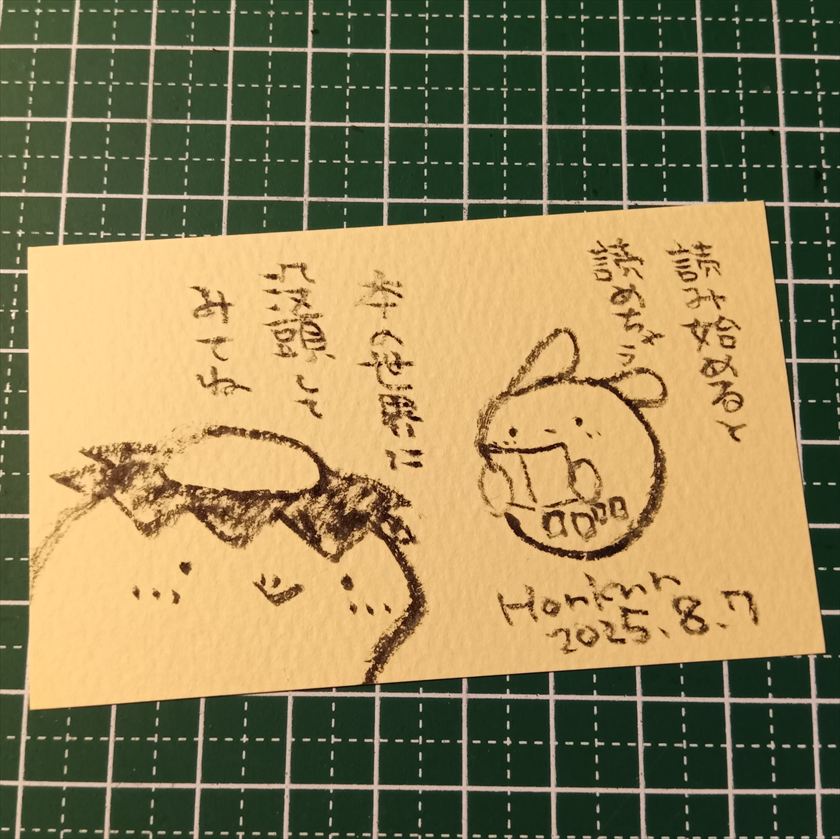 読み始めると
読めちゃう
本の世界に
没頭して
みてね
Honkun
2025.8.7